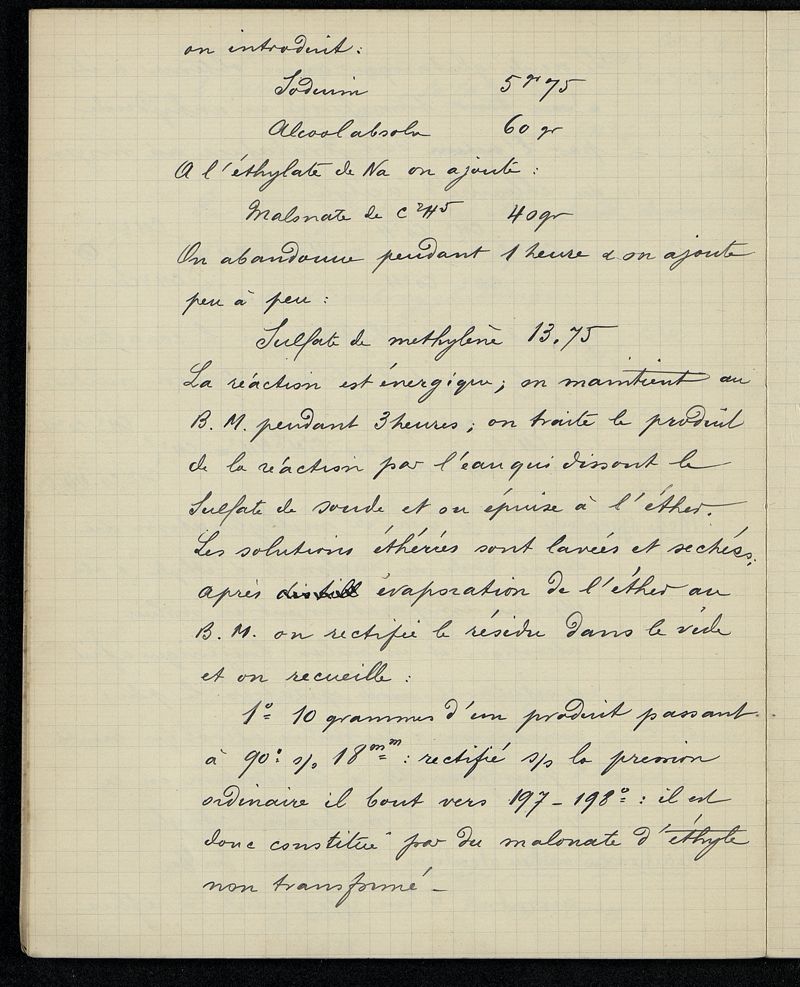 on introduit :
Sodium 5gr75
Alcool absolu 60 gr
A l'éthylate de Na on ajoute :
Malonate de C²H⁵ 40gr
On abandonne pendant 1 heure & on ajoute
peu à peu :
Sulfate de methylène 13.75
La réaction est énergique ; on maintient au
B. M. pendant 3 heures ; on traite le produit
de la réaction par l'eau qui dissout le
Sulfate de soude et on épuise à l'éther.
Les solutions éthérées sont lavées et sechées ;
après distill évaporation de l'éther au
B. M. on rectifie le résidu dans le vide
et on recueille :
1º 10 grammes d'un produit passant
à 90º s/s 18mm : rectifié s/s la pression
ordinaire il bout vers 197 - 198º : il est
donc constitué par du malonate d'éthyle
non transformé -